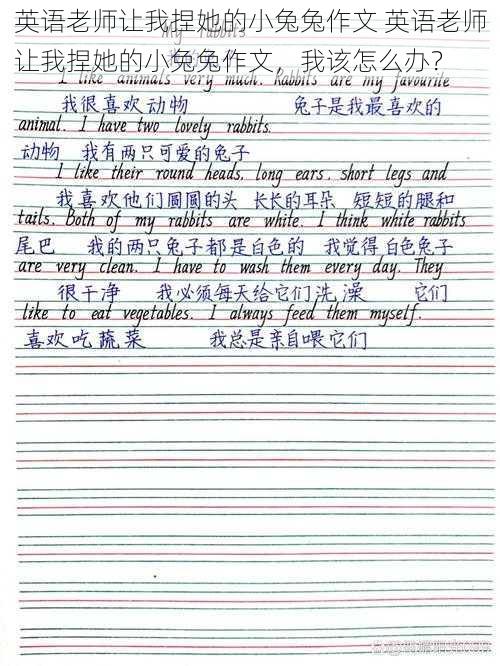 英语老师让我捏她的小兔兔作文 英语老师
让我捏她的小兔兔作文，我该怎么办？
my rabbits
I like animals very much. Rabbits are my favourite
我很喜欢动物 兔子是我最喜欢的
animal. I have two lovely rabbits.
动物 我有两只可爱的兔子
I like their round heads, long ears, short legs and
我喜欢他们圆圆的头 长长的耳朵 短短的腿和
tails. Both of my rabbits are white. I think white rabbits
尾巴 我的两只兔子都是白色的 我觉得白色兔子
are very clean. I have to wash them every day. They
很干净 我必须每天给它们洗澡 它们
like to eat vegetables. I always feed them myself.
喜欢吃蔬菜 我总是亲自喂它们